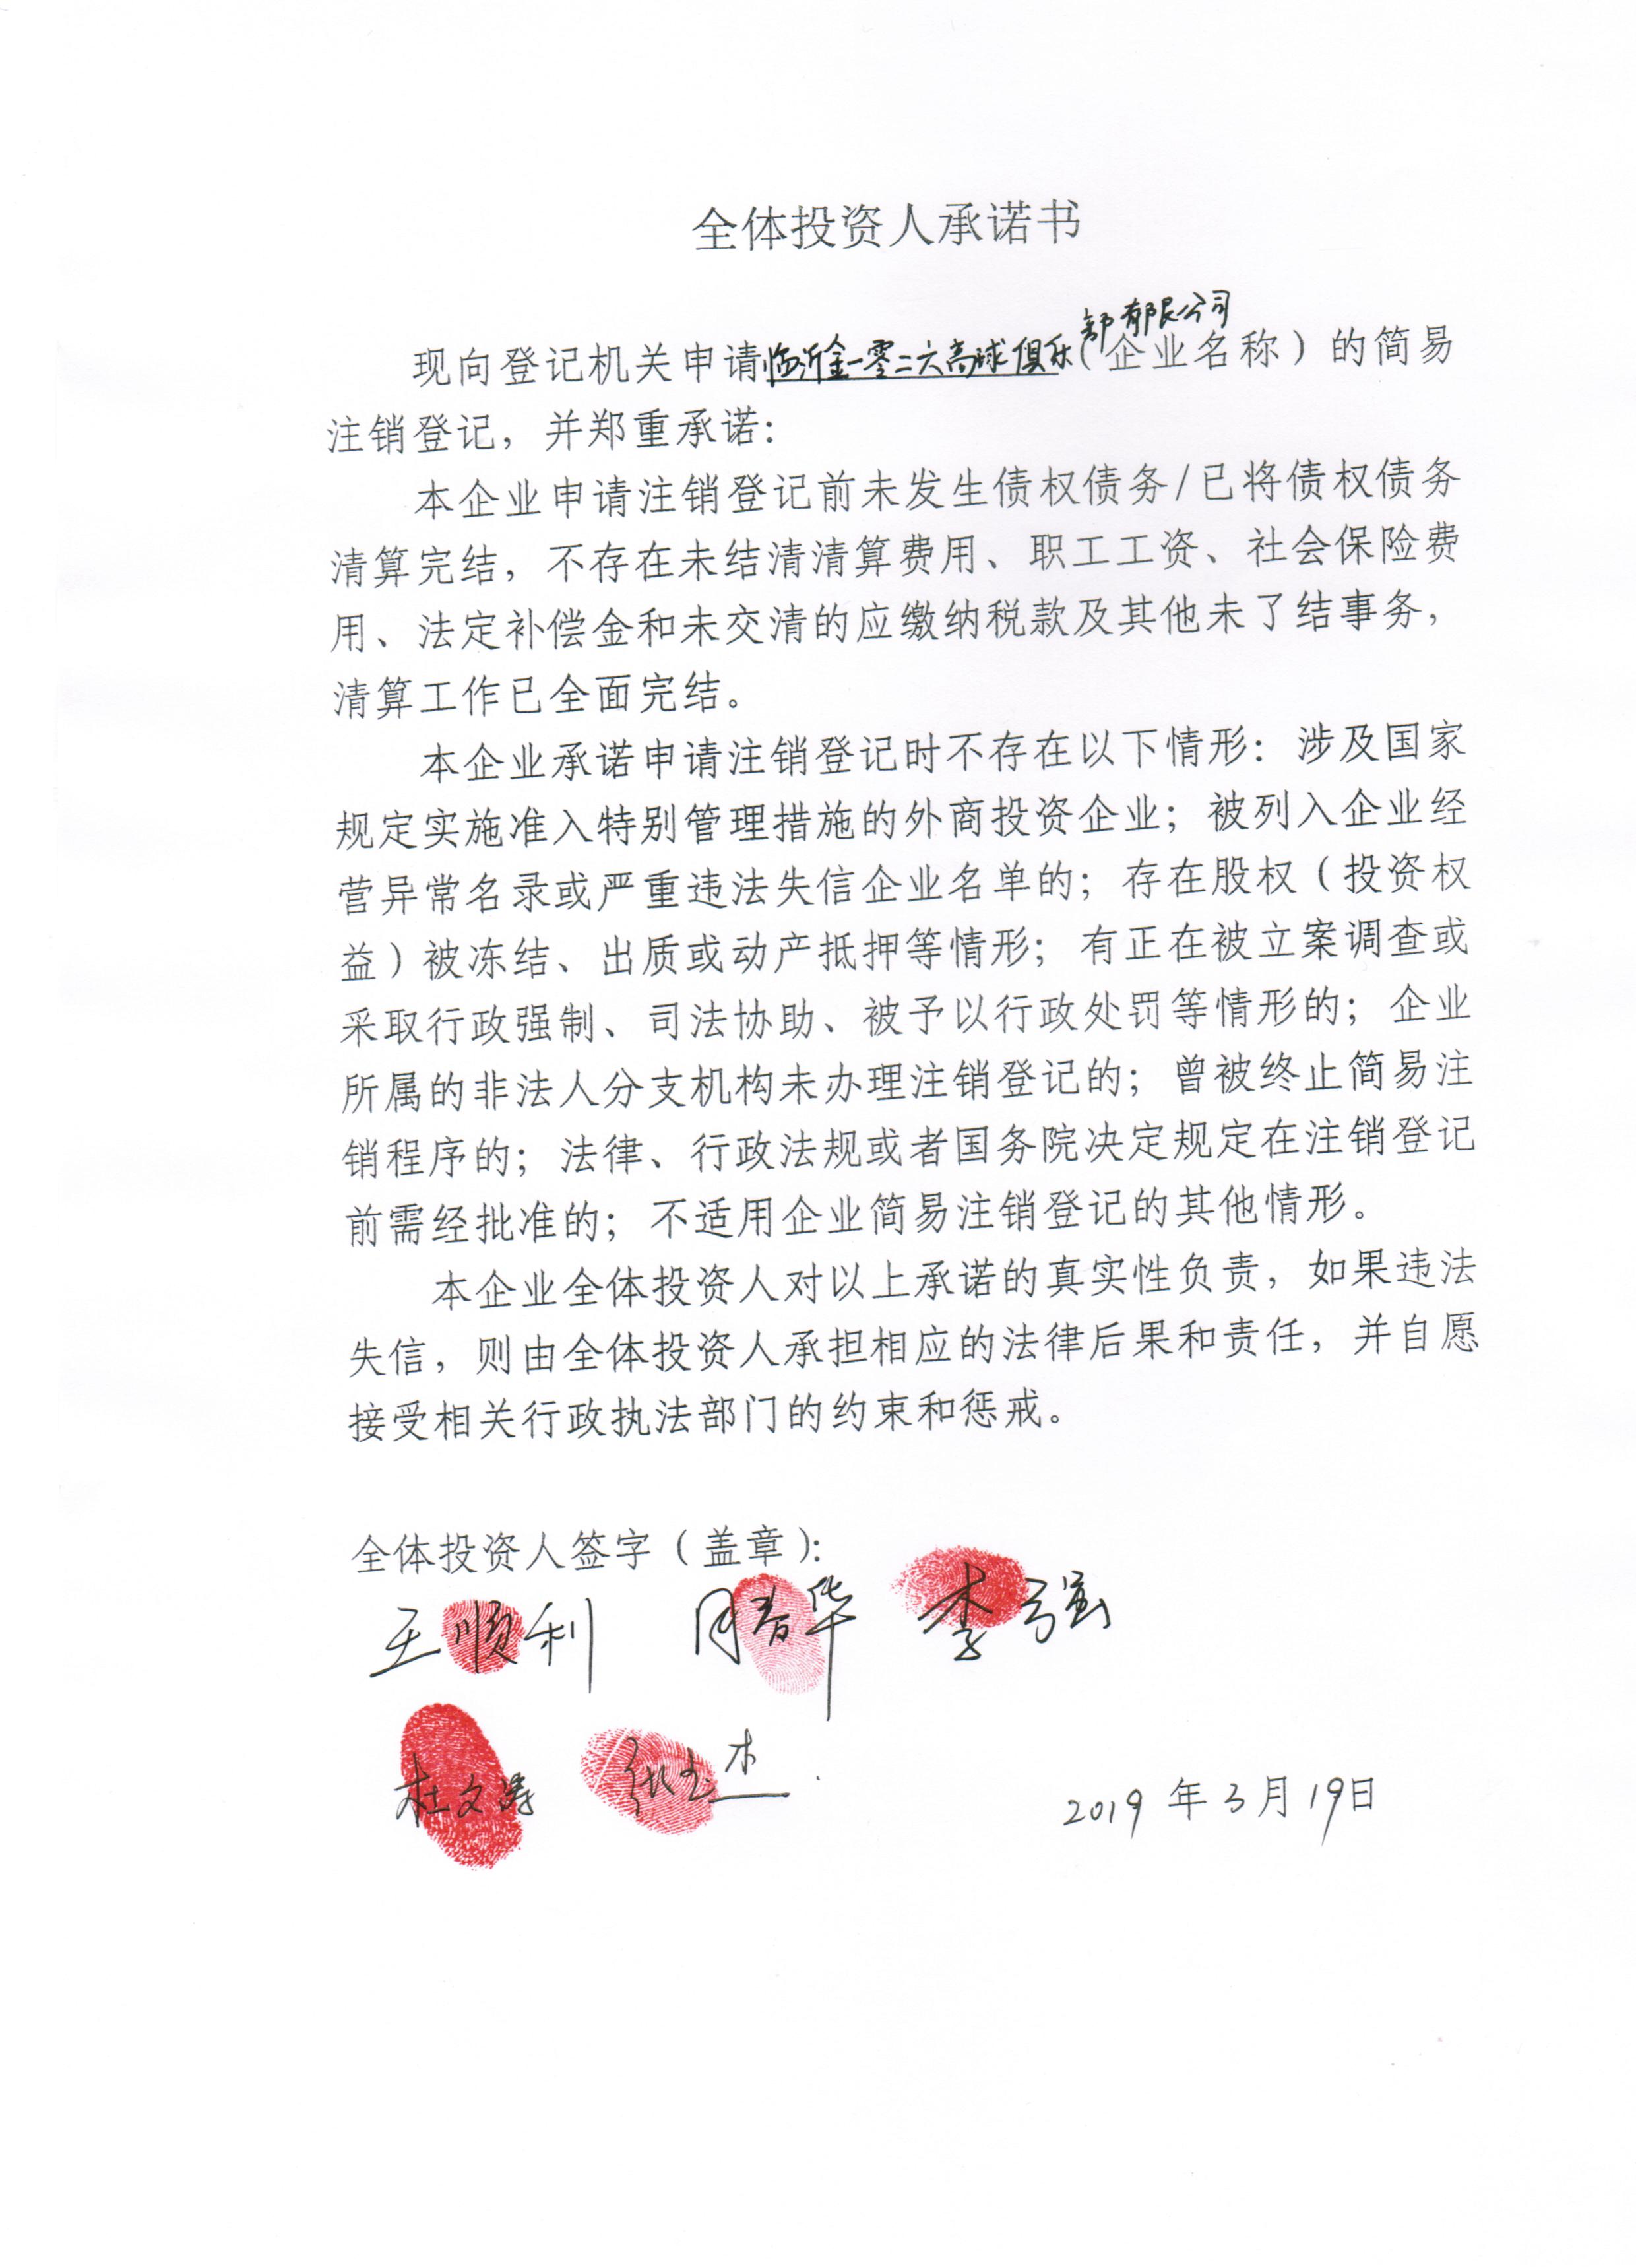 全体投资人承诺书
部有限公司
现向登记机关申请临沂金一零二六高球俱乐(企业名称)的简易
注销登记，并郑重承诺：
本企业申请注销登记前未发生债权债务/已将债权债务
清算完结，不存在未结清清算费用、职工工资、社会保险费
用、法定补偿金和未交清的应缴纳税款及其他未了结事务，
清算工作已全面完结。
本企业承诺申请注销登记时不存在以下情形：涉及国家
规定实施准入特别管理措施的外商投资企业；被列入企业经
营异常名录或严重违法失信企业名单的；存在股权（投资权
益）被冻结、出质或动产抵押等情形；有正在被立案调查或
采取行政强制、司法协助、被予以行政处罚等情形的；企业
所属的非法人分支机构未办理注销登记的；曾被终止简易注
销程序的；法律、行政法规或者国务院决定规定在注销登记
前需经批准的；不适用企业简易注销登记的其他情形。
本企业全体投资人对以上承诺的真实性负责，如果违法
失信，则由全体投资人承担相应的法律后果和责任，并自愿
接受相关行政执法部门的约束和惩戒。
全体投资人签字（盖章）：
王顺利 周春华 李强
杜文涛 张杰
2019年3月19日